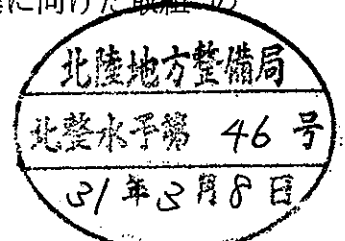 に向けた取組への
北陸地方整備局
北整水予第 46 号
31年3月8日